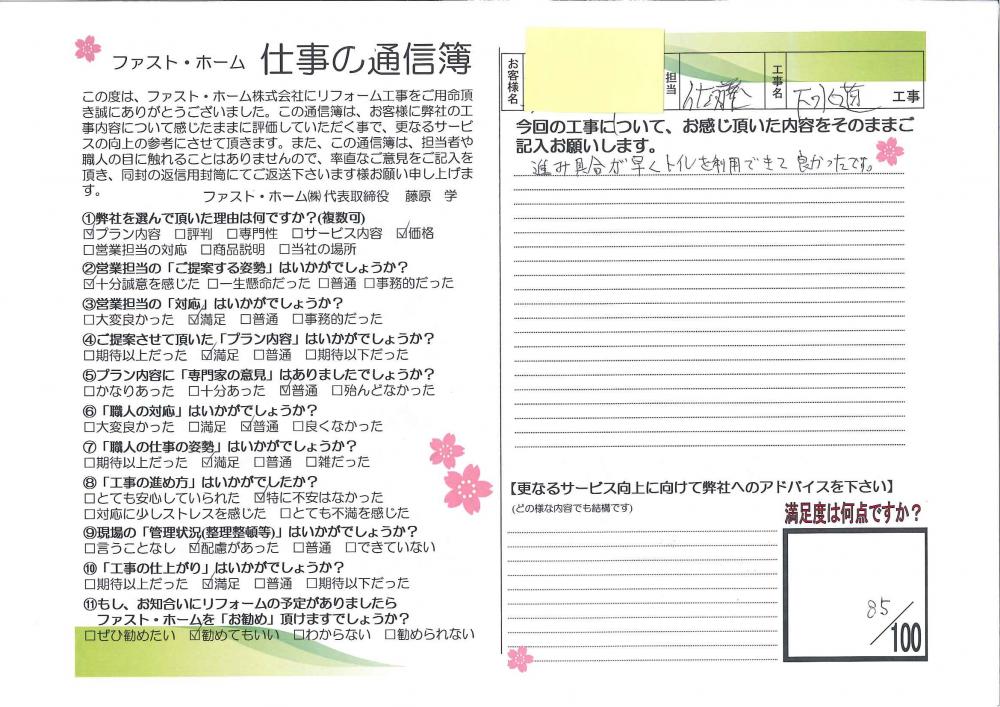 ファスト・ホーム 仕事の通信簿
この度は、ファスト・ホーム株式会社にリフォーム工事をご用命頂
き誠にありがとうございました。この通信簿は、お客様に弊社の工
事内容について感じたままに評価していただく事で、更なるサービ
スの向上の参考にさせて頂きます。また、この通信簿は、担当者や
職人の目に触れることはありませんので、率直なご意見をご記入を
頂き、同封の返信用封筒にてご返送下さいます様お願い申し上げま
す。
ファスト・ホーム㈱代表取締役 藤原 学
①弊社を選んで頂いた理由は何ですか？(複数可)
☑プラン内容 □評判 □専門性 □サービス内容 ☑価格
□営業担当の対応 □商品説明 □当社の場所
②営業担当の「ご提案する姿勢」はいかがでしょうか？
☑十分誠意を感じた □一生懸命だった □普通 □事務的だった
③営業担当の「対応」はいかがでしょうか？
□大変良かった ☑満足 □普通 □事務的だった
④ご提案させて頂いた「プラン内容」はいかがでしょうか？
□期待以上だった ☑満足 □普通 □期待以下だった
⑤プラン内容に「専門家の意見」はありましたでしょうか？
□かなりあった □十分あった ☑普通 □殆んどなかった
⑥「職人の対応」はいかがでしょうか？
□大変良かった □満足 ☑普通 □良くなかった
⑦「職人の仕事の姿勢」はいかがでしょうか？
□期待以上だった ☑満足 □普通 □雑だった
⑧「工事の進め方」はいかがでしたか？
□とても安心していられた ☑特に不安はなかった
□対応に少しストレスを感じた □とても不満を感じた
⑨現場の「管理状況(整理整頓等)」はいかがでしょうか？
□言うことなし ☑配慮があった □普通 □できていない
⑩「工事の仕上がり」はいかがでしょうか？
□期待以上だった ☑満足 □普通 □期待以下だった
⑪もし、お知合いにリフォームの予定がありましたら
ファスト・ホームを「お勧め」頂けますでしょうか？
□ぜひ勧めたい ☑勧めてもいい □わからない □勧められない
お客様名 担当 佐藤 工事名 工事
今回の工事について、お感じ頂いた内容をそのままご
記入お願いします。
進み具合が早くトイレを利用できて良かったです。
【更なるサービス向上に向けて弊社へのアドバイスを下さい】
(どの様な内容でも結構です)
満足度は何点ですか？
85/100